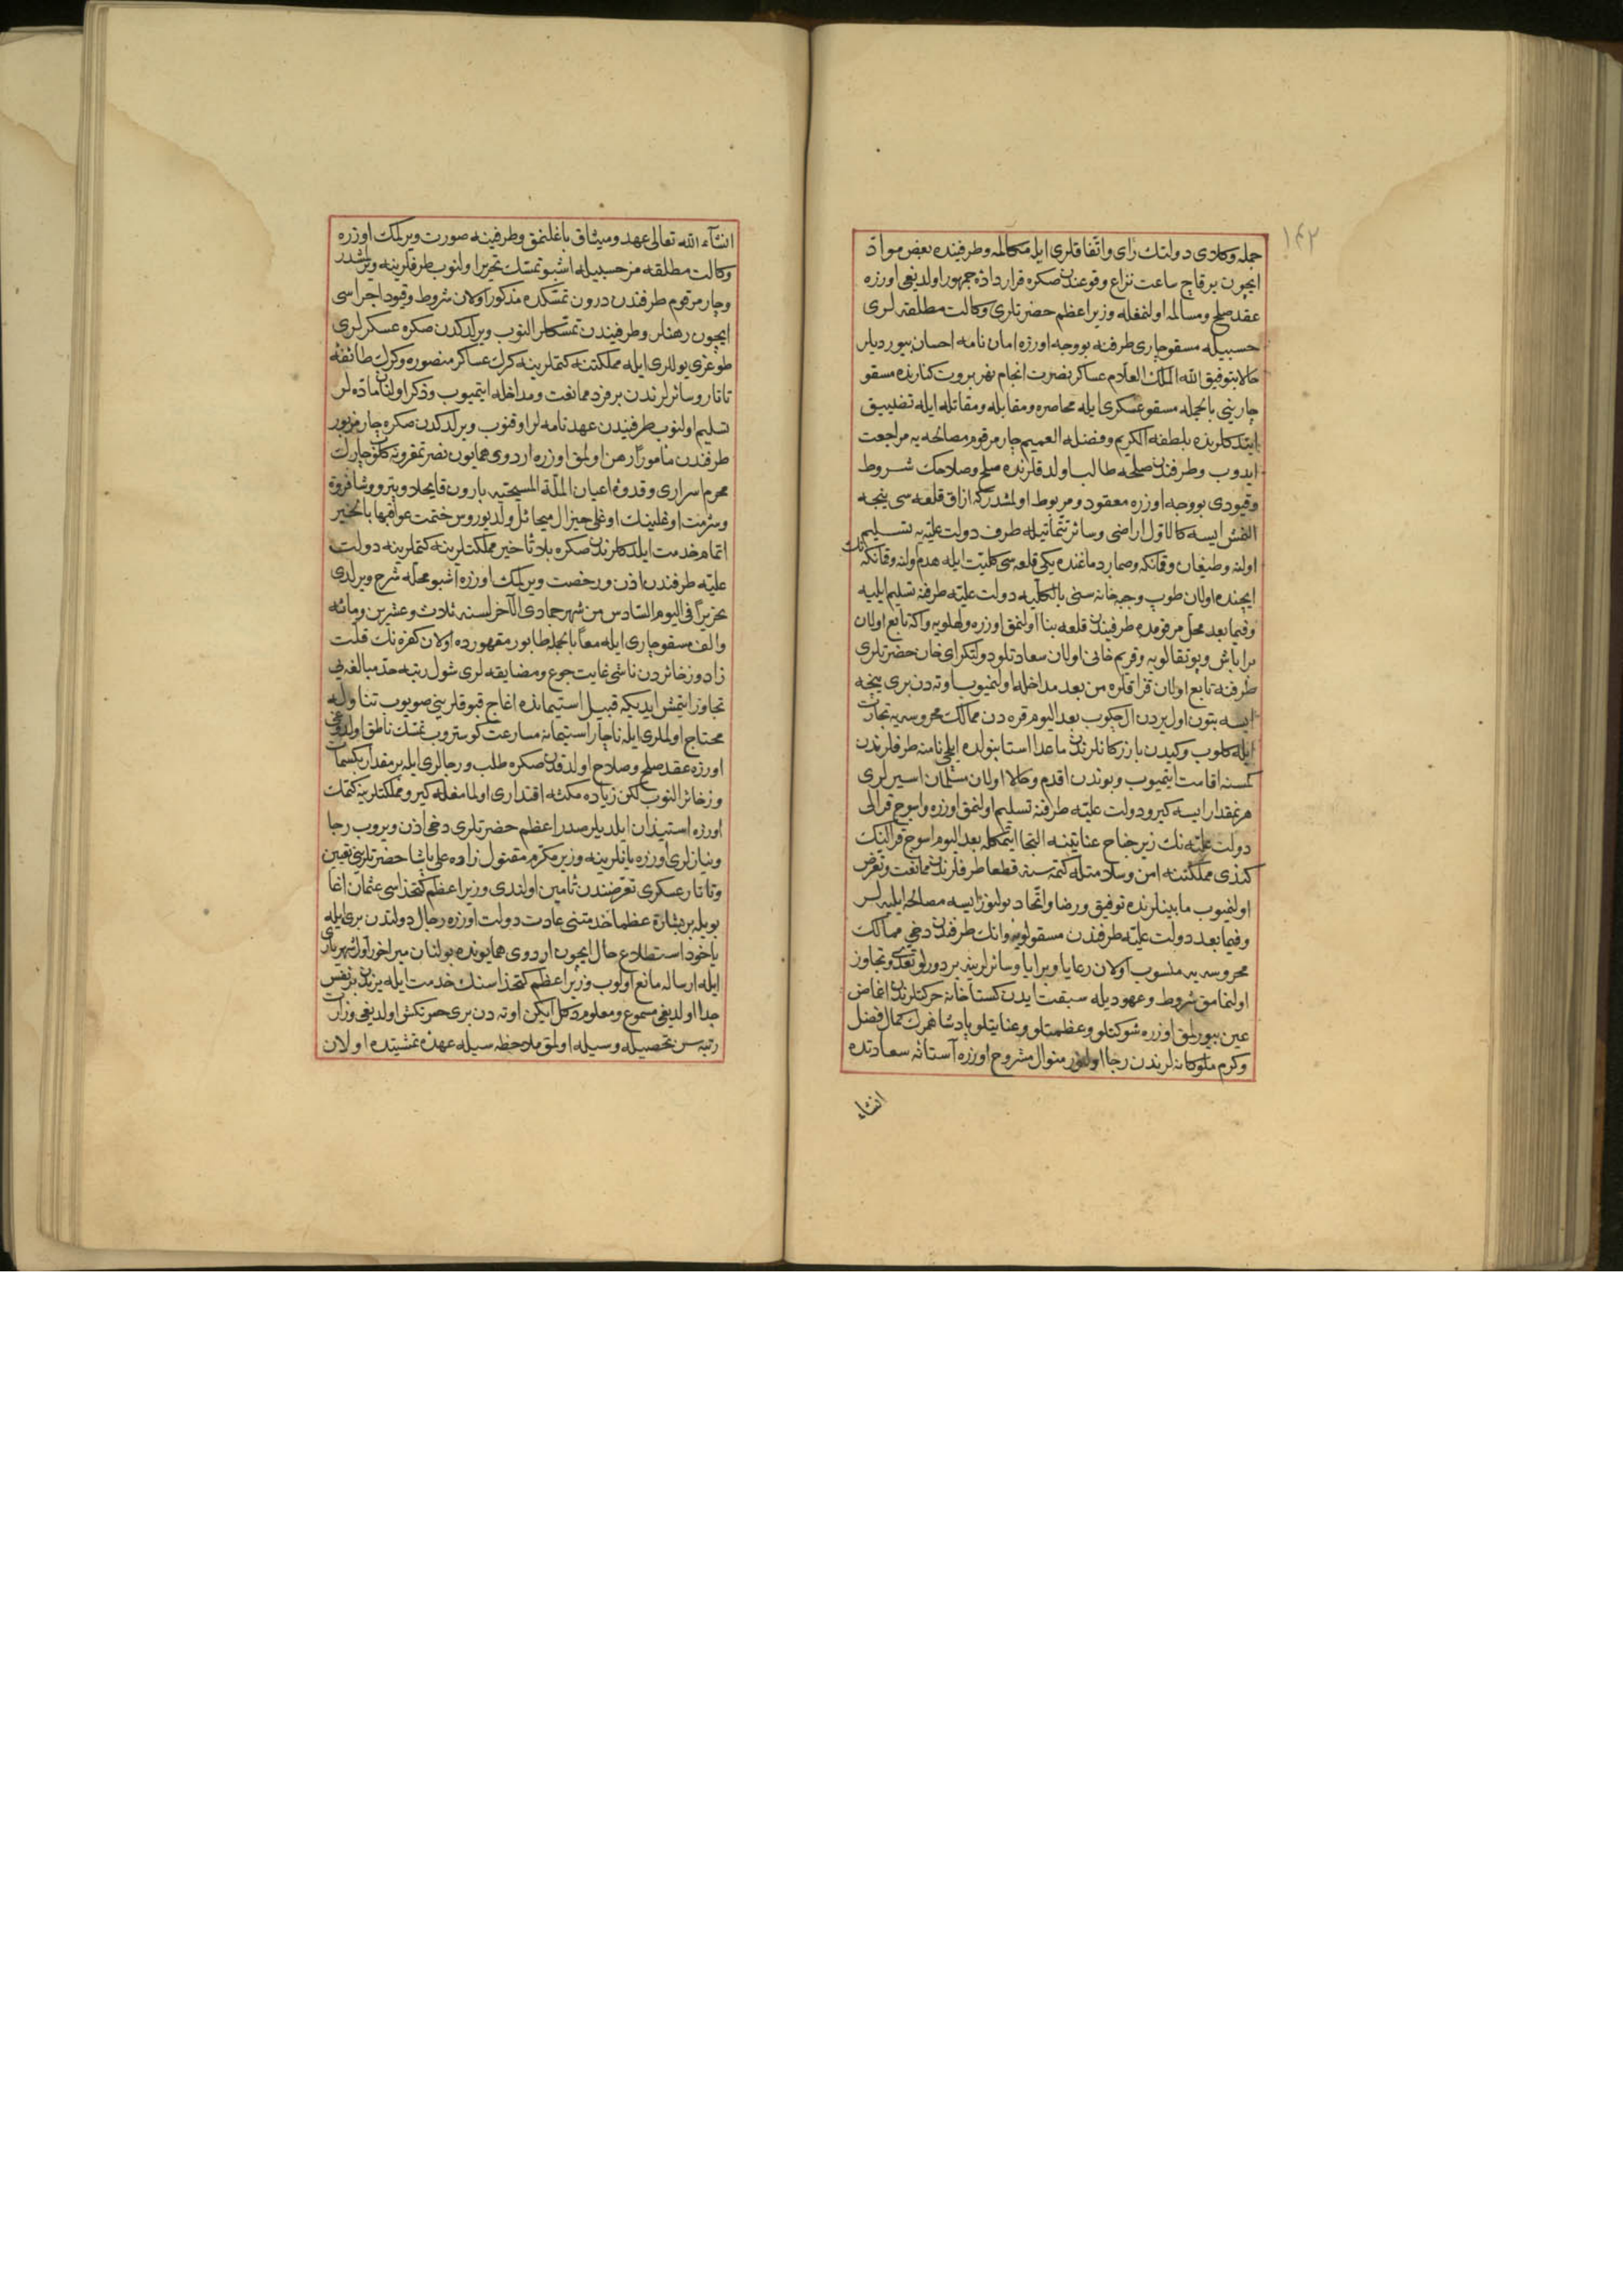 ١٤٢
جمله وكلاى دولتك راى واتفاقلرى ايله مكالمه وطرفينده بعض مواد
ايچون برقاچ ساعت نزاع وقوعندن صكره قرارداده جمهور اولديغى اوزره
عقد صلح ومسالمه اولنمغله وزير اعظم حضرتلرى وكالت مطلقه لرى
حسبيله مسقو چارى طرفنه بو وجه اوزره امان نامه احسان بيورديلر
حالا بتوفيق الله الملك العلام عساكر نصرت انجام نهر پروت كنارنده مسقو
چارينى بالجمله مسقو عسكرى ايله محاصره ومقابله ومقاتله ايله تضييق
ايتدكلرنده بلطفه الكريم وفضله العميم چار مرقوم مصالحه يه مراجعت
ايدوب وطرفندن صلحه طالب اولدقلرنده صلح وصلاحك شروط
وقيودى بو وجه اوزره معقود ومربوط اولمشدر كه ازاق قلعه سى نيجه
النمش ايسه كالاول اراضى وسائر تتماتيله طرف دولت عليه يه تسليم
اولنه وطيغان وقمانكه وصمار دماغنده يكى قلعه سى كليت ايله هدم اولنه وقمانكه نك
ايچنده اولان طوپ وجبه خانه سنى بالكليه دولت عليه طرفنه تسليم ايليه
وفيما بعد محل مرقومده طرفيندن قلعه بنا اولنمق اوزره ولهلويه واكا تابع اولان
براباش وپوتقالويه وقريم خانى اولان سعادتلو دولتكراى خان حضرتلرى
طرفنه تابع اولان قزاقلره من بعد مداخله اولنميوب اوته دن برى نيجه
ايسه بتون اول يردن ال چكوب بعد اليوم قره دن ممالك محروسه يه تجارت
ايله كلوب وكيدن بازركانلرندن ماعدا استانبولده ايلچى نامنه طرفلرندن
كمسنه اقامت ايتميوب وبوندن اقدم وحالا اولان مسلمان اسيرلرى
هر نمقدار ايسه كيرو دولت عليه طرفنه تسليم اولنمق اوزره واسوج قرالى
دولت عليه نك زير جناح عنايتنه التجا ايتمكله بعد اليوم اسوج قرالينك
كندى مملكتنه امن وسلامتله كتمه سنه قطعا طرفلرندن ممانعت وتعرض
اولنميوب مابينلرنده توفيق ورضا واتحاد بولنور ايسه مصالحه ايليه لر
وفيما بعد دولت عليه طرفندن مسقولويه وانك طرفندن دخى ممالك
محروسه يه منسوب اولان رعايا وبرايا وسائرلرينه بر دورلو تعدى وتجاوز
اولنمامق شروط وعهوديله سبقت ايدن كستاخانه حركتلرندن اغماض
عين بيورلمق اوزره شوكتلو وعظمتلو وعنايتلو پادشاهمك كمال فضل
وكرم ملوكانه لرندن رجا اولنور منوال مشروح اوزره آستانه سعادتده
انشاء
انشاء الله تعالى عهد وميثاق باغلنمق وطرفينه صورت ويرلمك اوزره
وكالت مطلقه مز حسبيله اشبو تمسك تحرير اولنوب طرفلرينه ويرلمشدر
وچار مرقوم طرفندن درون تمسكده مذكور اولان شروط وقيود اجراسى
ايچون رهنلر وطرفيندن تمسكلر النوب ويرلدكدن صكره عسكرلرى
طوغرى يوللرى ايله مملكتنه كتملرينه كرك عساكر منصوره وكرك طائفه
تاتار وسائرلرندن بر فرد ممانعت ومداخله ايتميوب وذكر اولنان ماده لر
تسليم اولنوب طرفيندن عهدنامه لر اوقنوب ويرلدكدن صكره چار مزبور
طرفندن مأمورا رهن اولمق اوزره اردوى همايون نصرتمقرونه كلان چارك
محرم اسرارى وقدوه اعيان الملة المسيحيه بارون قانچلار وپترو وشافروف
وشرمت اوغلينك اوغلى جنرال ميخائل ولد بوروس ختمت عواقبها بالخير
اتمام خدمت ايلدكلرندن صكره بلا تأخير مملكتلرينه كتملرينه دولت
عليه طرفندن اذن ورخصت ويرلمك اوزره اشبو محله شرح ويرلدى
تحريرا فى اليوم السادس من شهر جمادى الآخر لسنه ثلاث وعشرين ومائه
والف مسقو چارى ايله معا بالجمله طابور مقهورده اولان كفره نك قلت
زاد وزخائردن ناشى غايت جوع ومضايقه لرى شول رتبه حد مبالغه يى
تجاوز ايتمش ايديكه قبيل استيمانده اغاج قبوقلرينى صويوب تناوله
محتاج اولملرى ايله ناچار استيمانه مسارعت كوستروب تمسك ناطق اولدوغى
اوزره عقد صلح وصلاح اولدقدن صكره طلب ورجالرى ايله بر مقدار بكسمات
وزخائر النوب لكن زياده مكثه اقتدارى اولمامغله كيرو مملكتلرينه كتمك
اوزره استيذان ايلديلر صدر اعظم حضرتلرى دخى اذن ويروب رجا
ونيازلرى اوزره يانلرينه وزير مكرم مقتول زاده على پاشا حضرتلرينى تعيين
وتاتار عسكرى تعرضندن تأمين اولندى وزير اعظم كتخداسى عثمان اغا
بويله بر بشارة عظما خدمتنى عادت دولت اوزره رجال دولتدن برى ايله
ياخود استطلاع حال ايچون اردوى همايونده بولنان ميراخور اول شهريارى
ايله ارساله مانع اولوب وزير اعظم كتخداسنك خدمت ايله يرندن بر نفس
جدا اولديغى مسموع ومعلوم دكل ايكن اوته دن برى حسرتكش اولديغى وزارت
رتبه سن تحصيله وسيله اولمق ملاحظه سيله عهده تمشيتده اولان